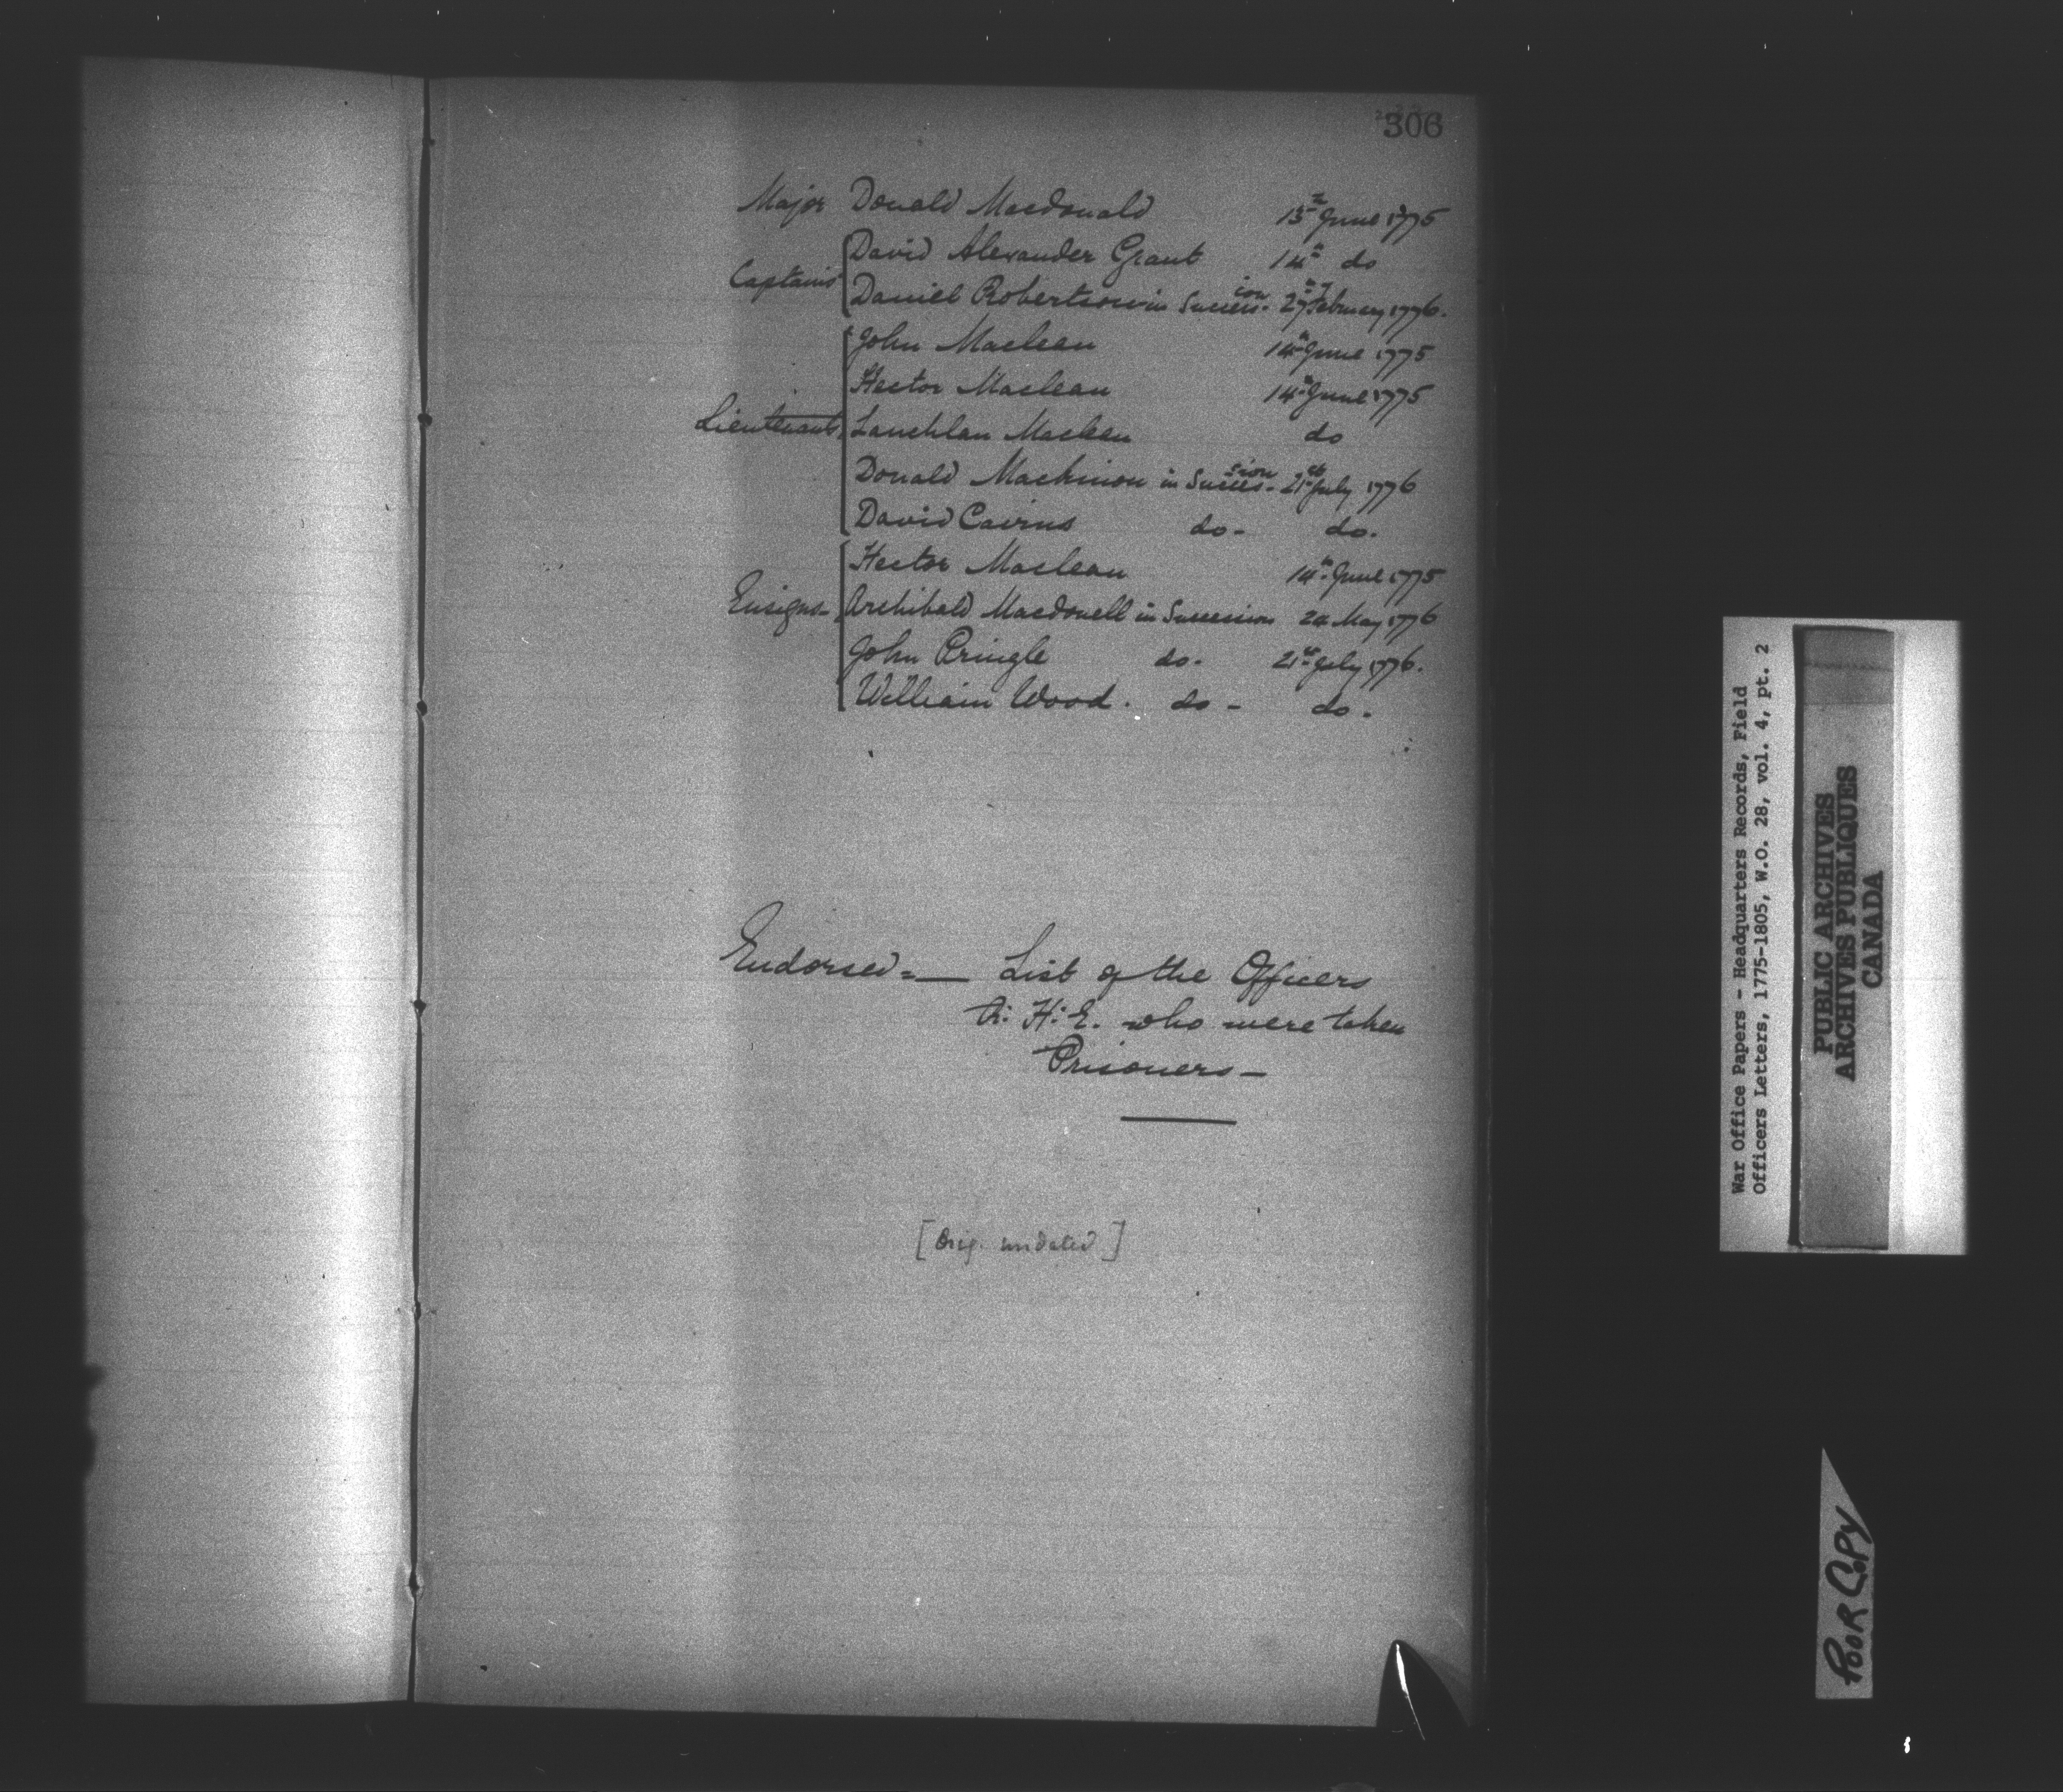 306
Major Donald Macdonald 13th June 1775
David Alexander Grant 14th do
Captains
Daniel Robertson in Succession 27th February 1776.
John Maclean 14th June 1775
Hector Maclean 14th June 1775
Lieutenants Lauchlan Maclean do
Donald Mackinnon in Succession 21st July 1776
David Cairns do- do.
Hector Maclean 14th June 1775
Ensigns- Archibald Macdonell in Succession 24 May 1776
John Pringle do. 21st July 1776.
William Wood. do- do.
Endorsed=— List of the Officers
R: H: E. who were taken
Prisoners—
[Orig. undated]
War Office Papers - Headquarters Records, Field
Officers Letters, 1775-1805, W.O. 28, vol. 4, pt. 2
PUBLIC ARCHIVES
ARCHIVES PUBLIQUES
CANADA
POOR COPY